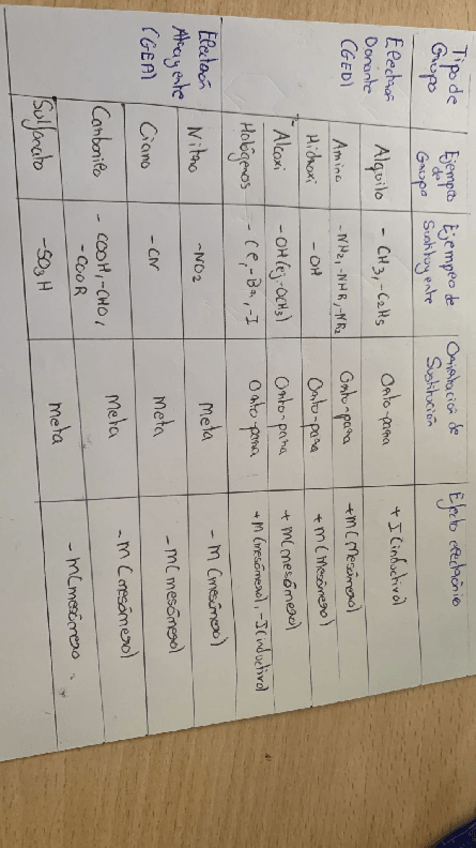 Tipo de Grupo | Ejemplo de Grupo | Ejemplo de Sustituyente | Orientación de Sustitución | Efecto electrónico
Electrón Donante (GED) | Alquilo | -CH3, -C2H5 | Orto-para | +I (inductivo)
Amino | -NH2, -NHR, -NR2 | Orto-para | +M (Mesómero)
Hidroxi | -OH | Orto-para | +M (Mesómero)
Alcoxi | -OH (ej: -OCH3) | Orto-para | +M (mesómero)
Halógenos | -Cl, -Br, -I | Orto-para | +M (mesómero), -I (inductivo)
Electrón Atrayente (GEA) | Nitro | -NO2 | Meta | -M (mesómero)
Ciano | -CN | Meta | -M (mesómero)
Carbonilo | -COOH, -CHO, -COOR | Meta | -M (mesómero)
Sulfonato | -SO3H | meta | -M (mesómero